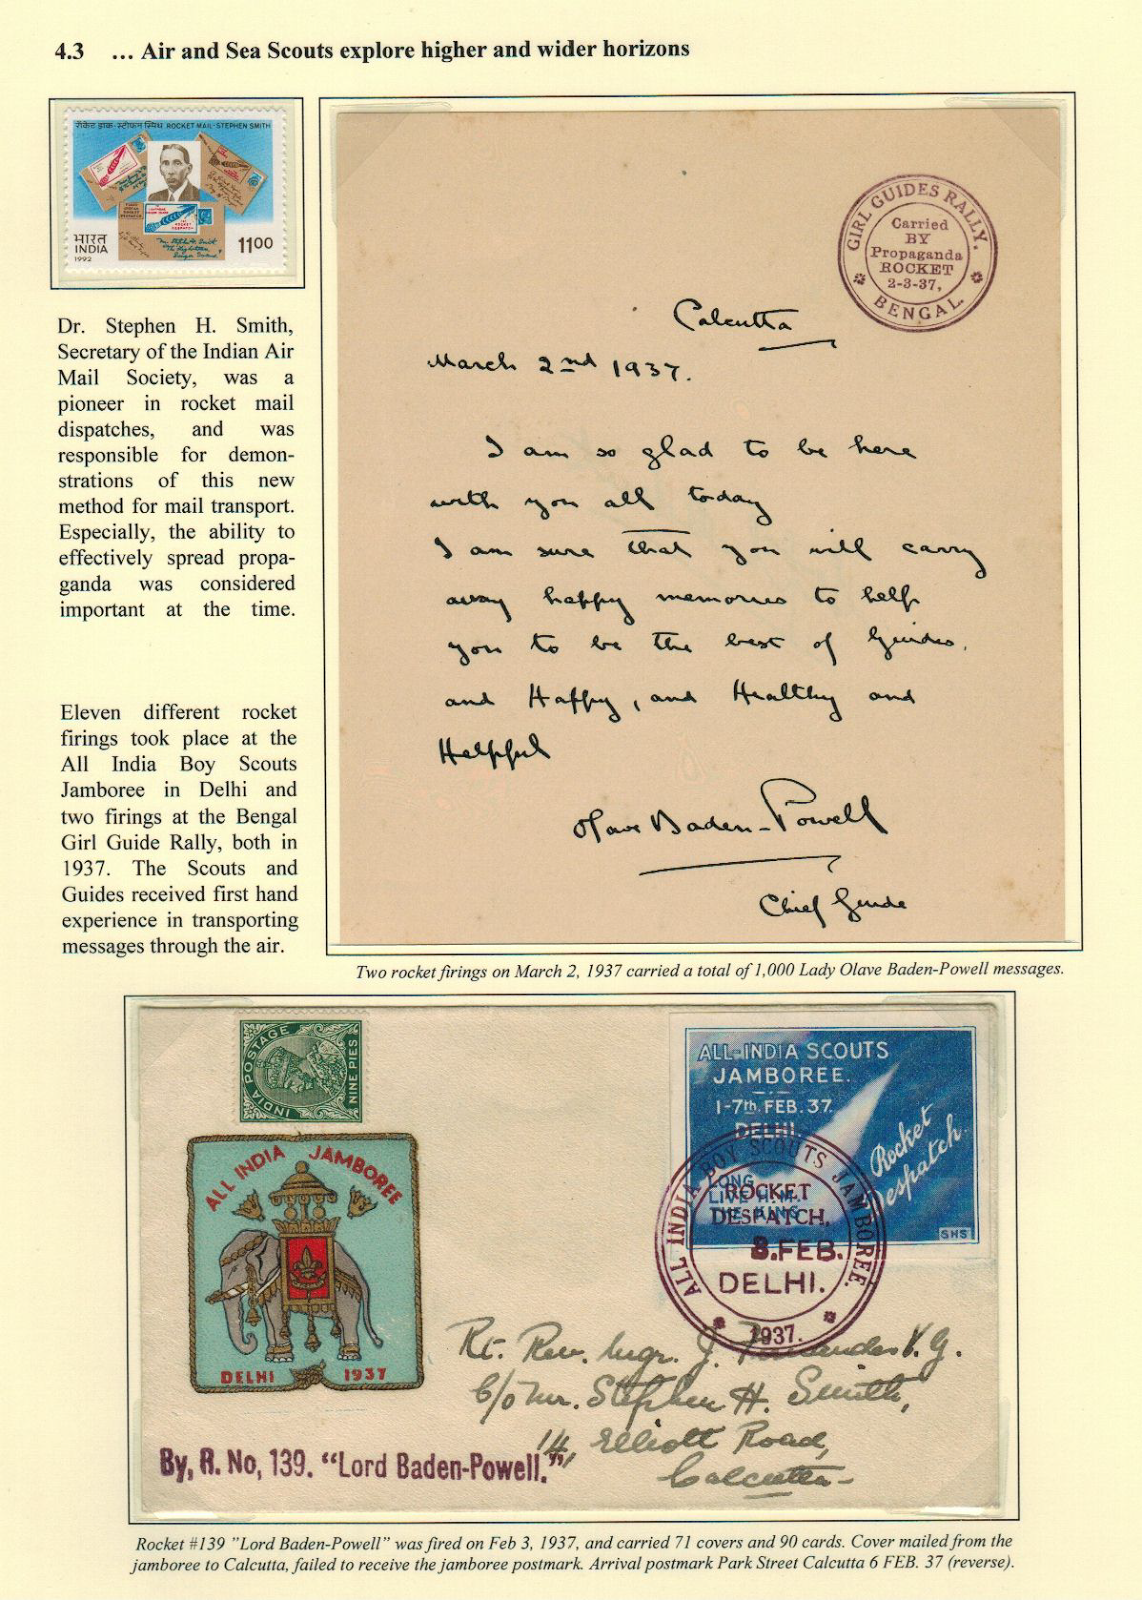 4.3 ... Air and Sea Scouts explore higher and wider horizons
रॉकेट डाक-स्टीफन स्मिथ ROCKET MAIL-STEPHEN SMITH
भारत
INDIA
1992
1100
Dr. Stephen H. Smith,
Secretary of the Indian Air
Mail Society, was a
pioneer in rocket mail
dispatches, and was
responsible for demon-
strations of this new
method for mail transport.
Especially, the ability to
effectively spread propa-
ganda was considered
important at the time.
Eleven different rocket
firings took place at the
All India Boy Scouts
Jamboree in Delhi and
two firings at the Bengal
Girl Guide Rally, both in
1937. The Scouts and
Guides received first hand
experience in transporting
messages through the air.
GIRL GUIDES RALLY.
BENGAL
Carried
BY
Propaganda
ROCKET
2-3-37,
Calcutta
March 2nd 1937.
I am so glad to be here
with you all today
I am sure that you will carry
away happy memories to help
you to be the best of Guides,
and Happy, and Healthy and
Helpful
Olave Baden-Powell
Chief Guide
Two rocket firings on March 2, 1937 carried a total of 1,000 Lady Olave Baden-Powell messages.
INDIA POSTAGE
NINE PIES
ALL INDIA JAMBOREE
DELHI 1937
ALL-INDIA SCOUTS
JAMBOREE.
1-7th. FEB. 37.
DELHI.
Rocket
Despatch.
LONG
LIVE H.M.
THE KING
SHS
ALL INDIA BOY SCOUTS JAMBOREE.
ROCKET
DESPATCH,
3.FEB.
DELHI.
1937.
Rt. Rev. Mgr. J. Fernandes V.G.
C/o Mr. Stephen H. Smith,
14, Elliott Road,
Calcutta-
By, R. No, 139. "Lord Baden-Powell."
Rocket #139 "Lord Baden-Powell" was fired on Feb 3, 1937, and carried 71 covers and 90 cards. Cover mailed from the
jamboree to Calcutta, failed to receive the jamboree postmark. Arrival postmark Park Street Calcutta 6 FEB. 37 (reverse).